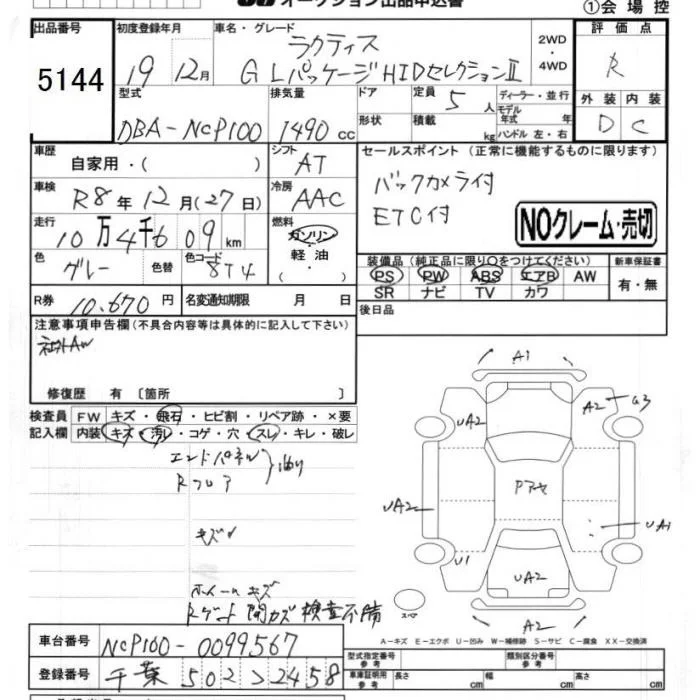 オークション出品申込書
①会場控
出品番号 5144
初度登録年月 19 12月
車名・グレード ラクティス
G Lパッケージ HIDセレクションⅡ
2WD・4WD
評価点 R
外装 D 内装 C
型式 DBA-NCP100
排気量 1490 cc
ドア 形状
定員 5人
積載 kg
ディーラー・並行
モデル年式 年
ハンドル 左・右
車歴 自家用・( )
シフト AT
車検 R8年12月(27日)
冷房 AAC
走行 10万4千609km
燃料 ガソリン・軽油・
色 グレー 色替
色コード 8T4
R券 10,670円
名変通知期限 月 日
セールスポイント(正常に機能するものに限ります)
バックカメラ付
ETC付
NOクレーム・売切
装備品(純正品に限り○をつけてください)
PS PW ABS エアB AW
SR ナビ TV カワ
新車保証書 有・無
後日品
注意事項申告欄(不具合内容等は具体的に記入して下さい)
社外AW
修復歴 有〔箇所 〕
検査員記入欄
FW キズ・飛石・ヒビ割・リペア跡・×要
内装 キズ・汚レ・コゲ・穴・スレ・キレ・破レ
エンドパネル
Rフロア
キズ
ホイールキズ
Rゲート開カズ 検査不備
A1
UA2
A2
G3
UA2
Pアセ
UA1
U1
UA2
スペア
A2
A-キズ E-エクボ U-凹み W-補修跡 S-サビ C-腐食 XX-交換済
車台番号 NCP100-0099567
登録番号 千葉 502 ラ 2458
型式指定番号 参考
類別区分番号 参考
車庫証明用 参考
長さ cm
幅 cm
高さ cm